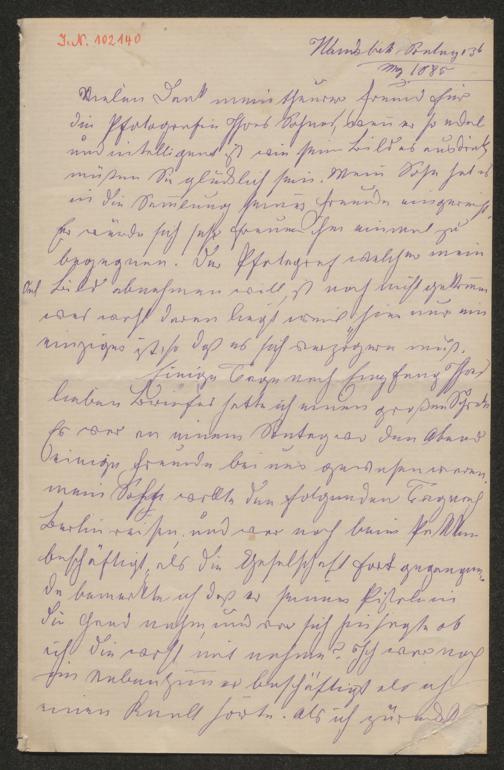 I.N. 102140
Wandsbek Freitag 3t
1885
Vielen Dank mein theurer Freund für
die Photografie Ihres Sohnes, wenn er so edel
und intelligent ist wie sein Bild es ausdrückt
müßen Sie glücklich sein. Mein Sohn hat es
in die Samlung seiner Freunde eingereiht
Er würde sich sehr freuen Ihm einmal zu
begegnen. Der Photograf welcher mein
Bild abnehmen will, ist noch nicht gekommen
was wohl daran liegt weil hier nur ein
einziger ist, so daß es sich verzögern muß.
Einige Tage nach Empfang Ihres
lieben Briefes hatte ich einen großen Schreck
Es war an einem Sontag wo den Abend
einige Freunde bei uns gewesen waren.
mein Sohn wollte den folgenden Tag nach
Berlin reisen, und war noch beim Packen
beschäftigt, als die Gesellschaft fort gegangen,
da bemerkte ich daß er seine Pistole in
die Hand nahm, und vor sich hin sagte ob
ich die wohl mit nehme? Ich war noch
im Nebenzimmer beschäftigt als ich
einen Knall hörte. Als ich